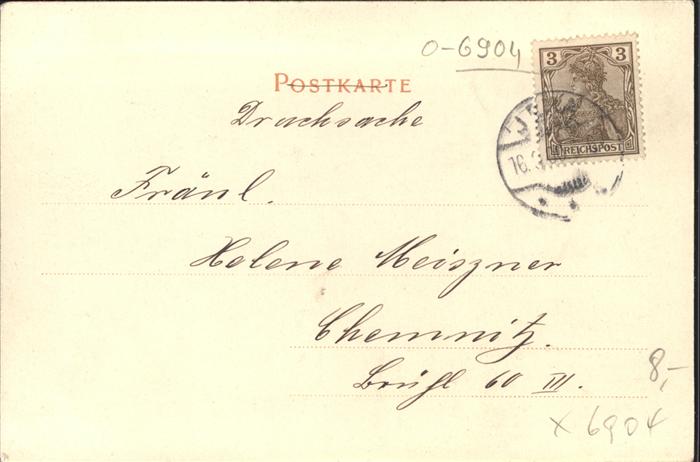 O-6904
3 3
POSTKARTE
REICHSPOST
Drucksache
16.3
Fräul.
Helene Meiszner
Chemnitz.
Brühl 60 III.
8,-
x 6904